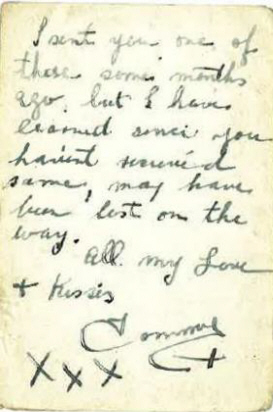 I sent you one of
these some months
ago, but I have
learned since you
havent received
same, may have
been lost on the
way.
All my Love
+ Kisses
Tommy
X X X +